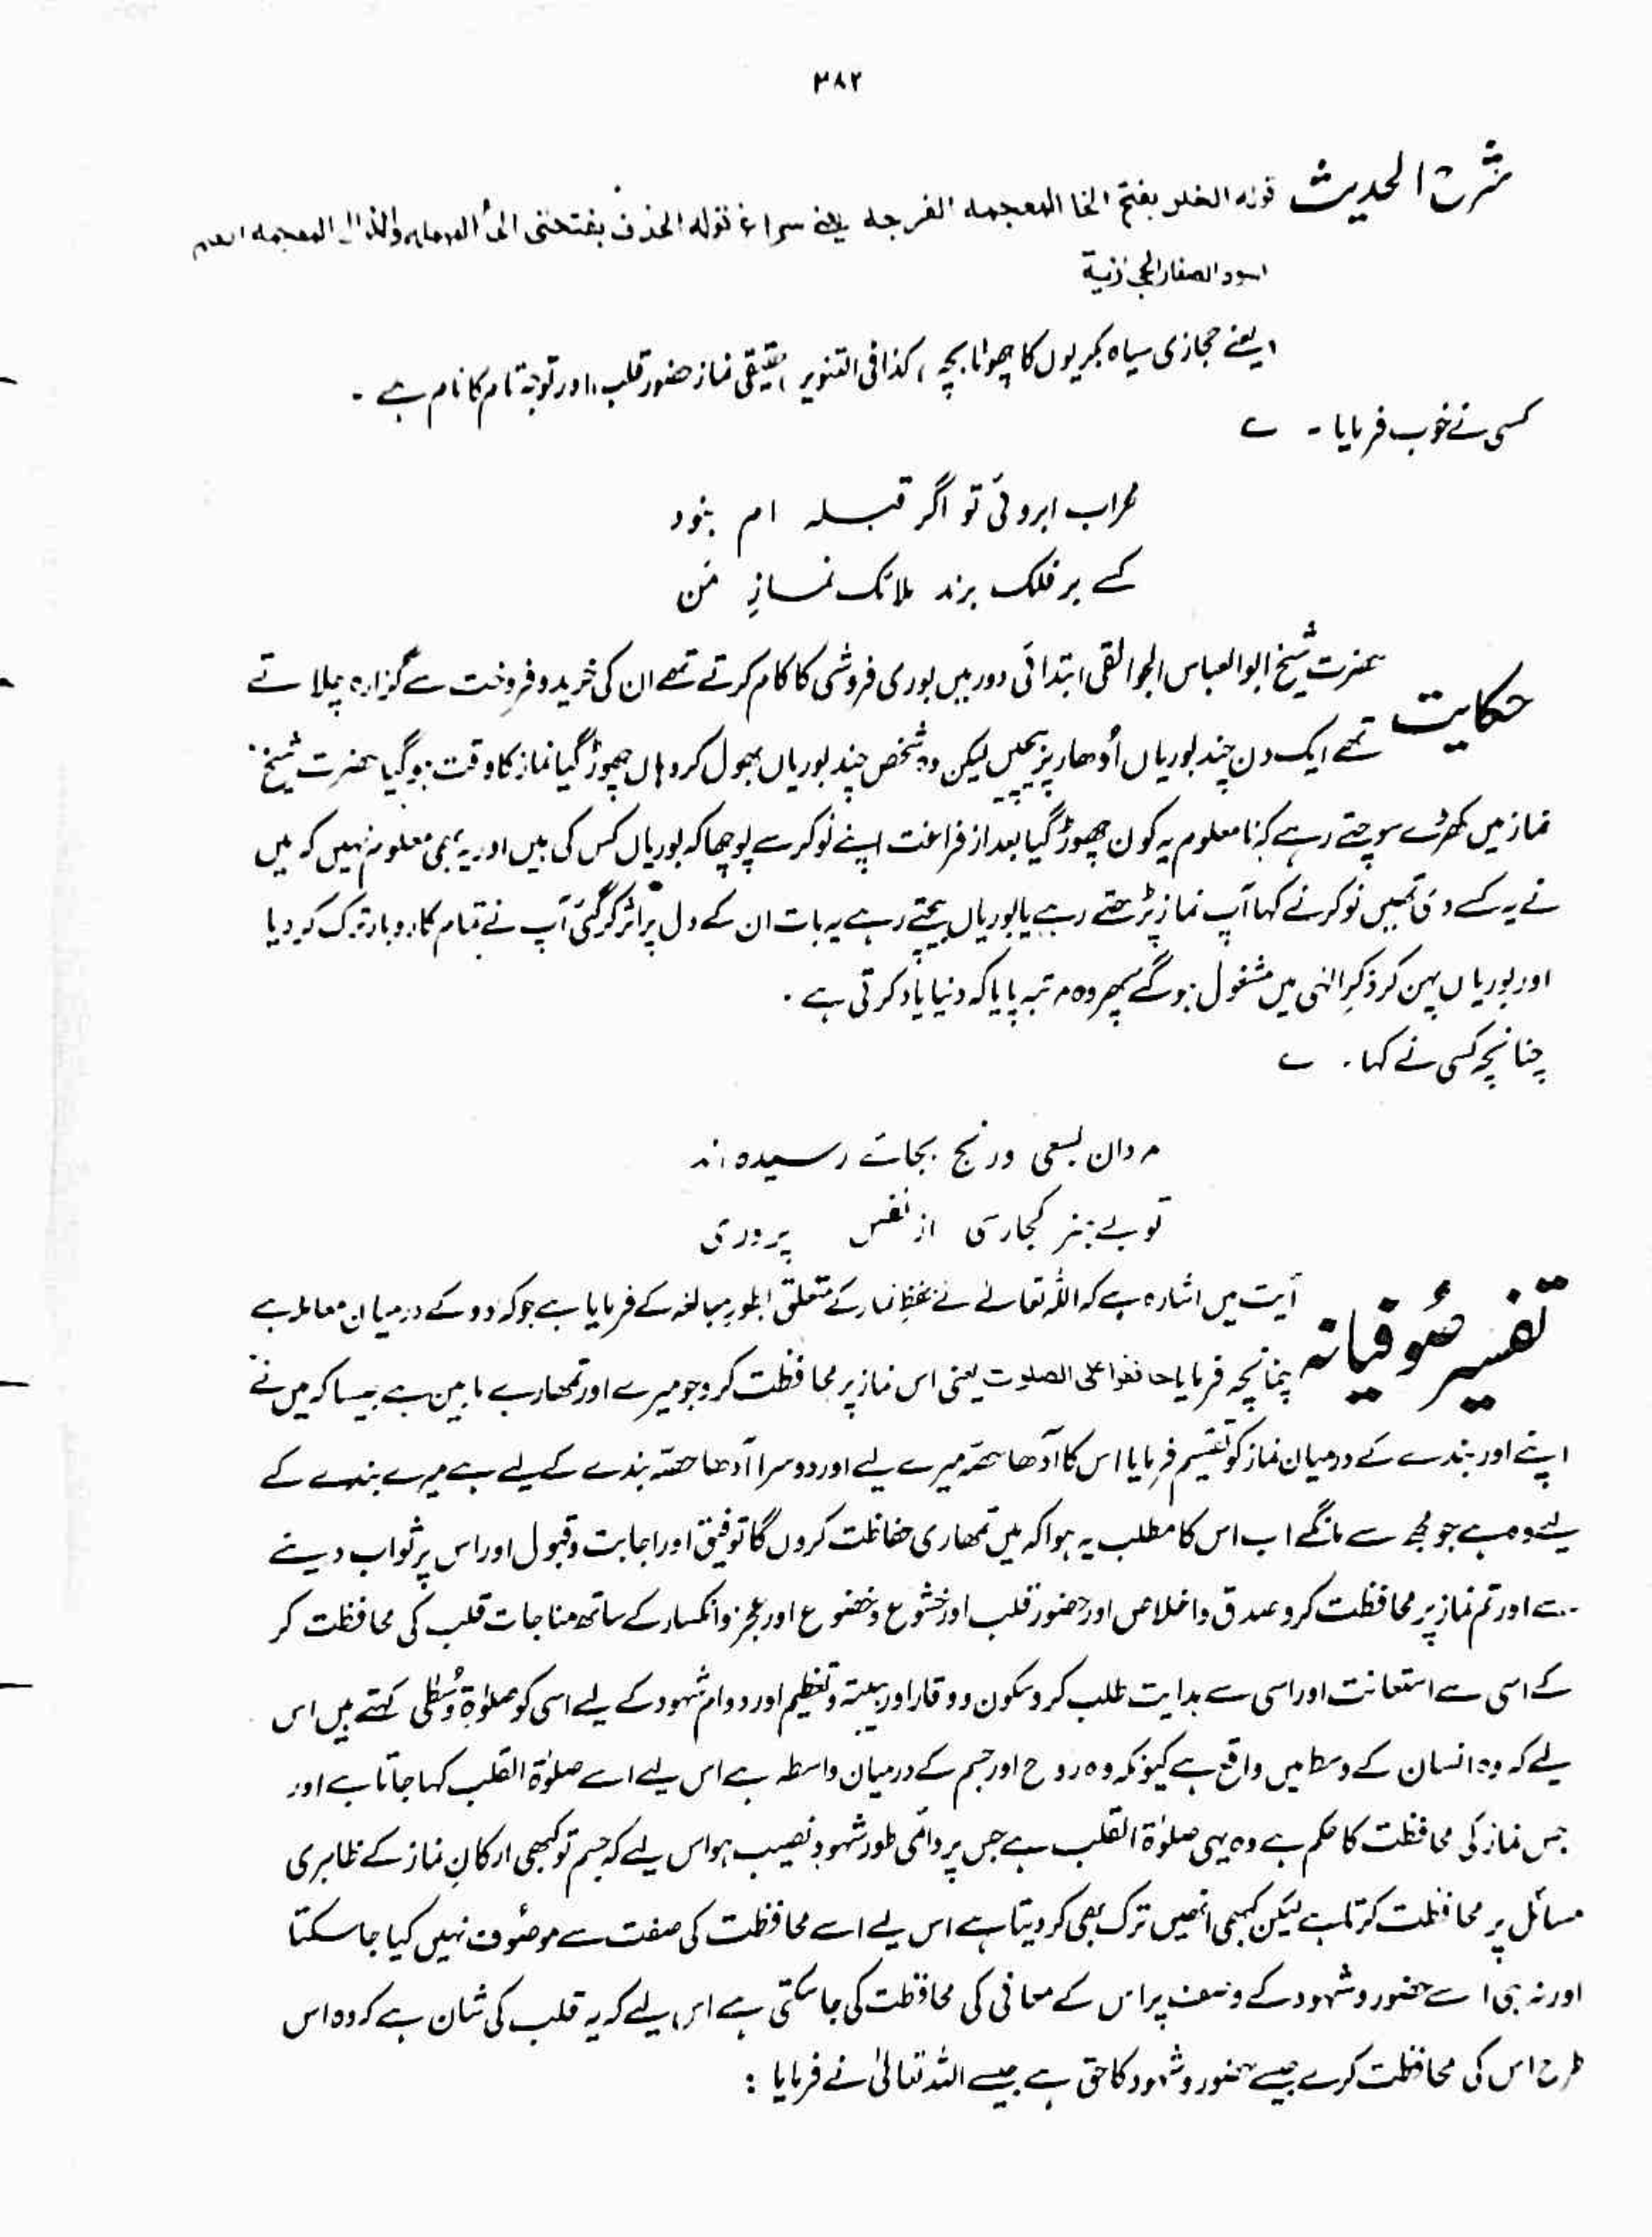 ۳۸۲
شرح الحدیث قوله الخلل بفتح الخا المعجمه الفرجه
اسود الصغار الحجازية
یعنے حجازی سیاہ بکریوں کا چھوٹا بچہ ، کذافی التنویر ، حقیقی نماز حضور قلب اور توجۂ تام کا نام ہے ۔
کسی نے خوب فرمایا ۔ ؎
محراب ابروئی تو اگر قبلہ ام بنود
کے بر فلک برند ملائک نمازِ من
حکایت حضرت شیخ ابو العباس الجوالقی ابتدائی دور میں بوری فروشی کا کام کرتے تھے ان کی خرید و فروخت سے گزارہ چلاتے
تھے ایک دن چند بوریاں اُدھار پر بیچیں لیکن وہ شخص چند بوریاں بھول کر وہاں چھوڑ گیا نماز کا وقت ہو گیا حضرت شیخ
نماز میں کھڑے سوچتے رہے کہ نا معلوم یہ کون چھوڑ گیا بعد از فراغت اپنے نوکر سے پوچھا کہ بوریاں کس کی ہیں اور یہ بھی معلوم نہیں کہ میں
نے یہ کسے دی تھیں نوکر نے کہا آپ نماز پڑھتے رہے یا بوریاں بیچتے رہے یہ بات ان کے دل پر اثر کر گئی آپ نے تمام کاروبار ترک کر دیا
اور بوریاں پہن کر ذکرِ الٰہی میں مشغول ہو گئے پھر وہ مرتبہ پایا کہ دنیا یاد کرتی ہے ۔
چنانچہ کسی نے کہا ۔ ؎
مردان بسعی ورنج بجائے رسیدہ اند
تو بے ہنر کجا رسی از نفس پروری
تفسیر صُوفیانہ آیت میں اشارہ ہے کہ اللہ تعالےٰ نے حفظِ نماز کے متعلق بطورِ مبالغہ کے فرمایا ہے جو کہ دو کے درمیان معاملہ ہے
چنانچہ فرمایا حافظوا علی الصلوت یعنی اس نماز پر محافظت کرو جو میرے اور تمھارے مابین ہے جیسا کہ میں نے
اپنے اور بندے کے درمیان نماز کو تقسیم فرمایا اس کا آدھا حصّہ میرے لیے اور دوسرا آدھا حصّہ بندے کے لیے ہے میرے بندے کے
لیے وہ ہے جو مجھ سے مانگے اب اس کا مطلب یہ ہوا کہ میں تمھاری حفاظت کروں گا توفیق اور اجابت و قبول اور اس پر ثواب دینے
سے اور تم نماز پر محافظت کرو صدق و اخلاص اور حضور قلب اور خشوع و خضوع اور عجز و انکسار کے ساتھ مناجات قلب کی محافظت کر
کے اسی سے استعانت اور اسی سے ہدایت طلب کرو سکون و وقار اور ہیبتہ و تعظیم اور دوام شہود کے لیے اسی کو صلوٰۃ وُسطٰی کہتے ہیں اس
لیے کہ وہ انسان کے وسط میں واقع ہے کیونکہ وہ روح اور جسم کے درمیان واسطہ ہے اس لیے اسے صلوٰۃ القلب کہا جاتا ہے اور
جس نماز کی محافظت کا حکم ہے وہ یہی صلوٰۃ القلب ہے جس پر دائمی طور شہود نصیب ہو اس لیے کہ جسم تو کبھی ارکانِ نماز کے ظاہری
مسائل پر محافظت کرتا ہے لیکن کبھی انھیں ترک بھی کر دیتا ہے اس لیے اسے محافظت کی صفت سے موصُوف نہیں کیا جا سکتا
اور نہ ہی اسے حضور و شہود کے وصف پر اس کے معانی کی محافظت کی جا سکتی ہے اس لیے کہ یہ قلب کی شان ہے کہ وہ اس
طرح اس کی محافظت کرے جیسے حضور و شہود کا حق ہے جیسے اللہ تعالیٰ نے فرمایا :